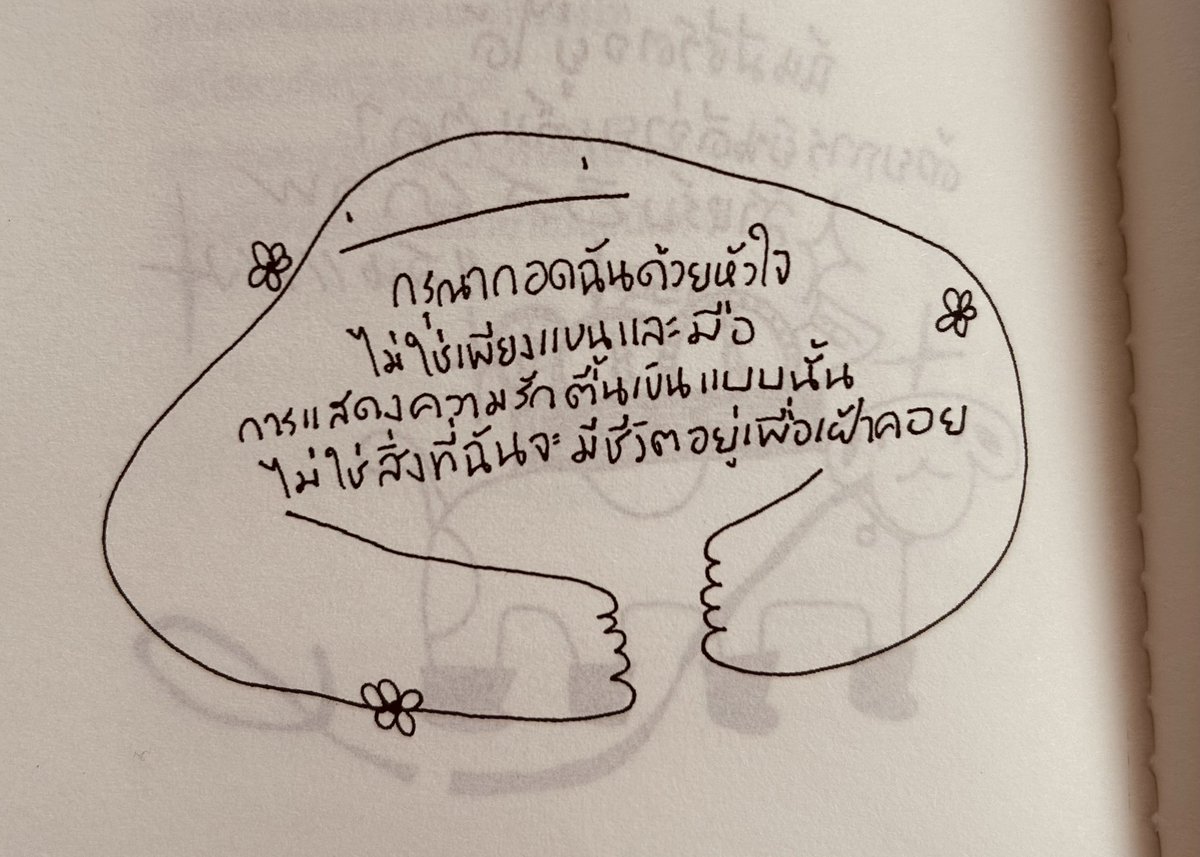 กรุณากอดฉันด้วยหัวใจ
ไม่ใช่เพียงแขนและมือ
การแสดงความรักตื้นเขินแบบนั้น
ไม่ใช่สิ่งที่ฉันจะมีชีวิตอยู่เพื่อเฝ้าคอย